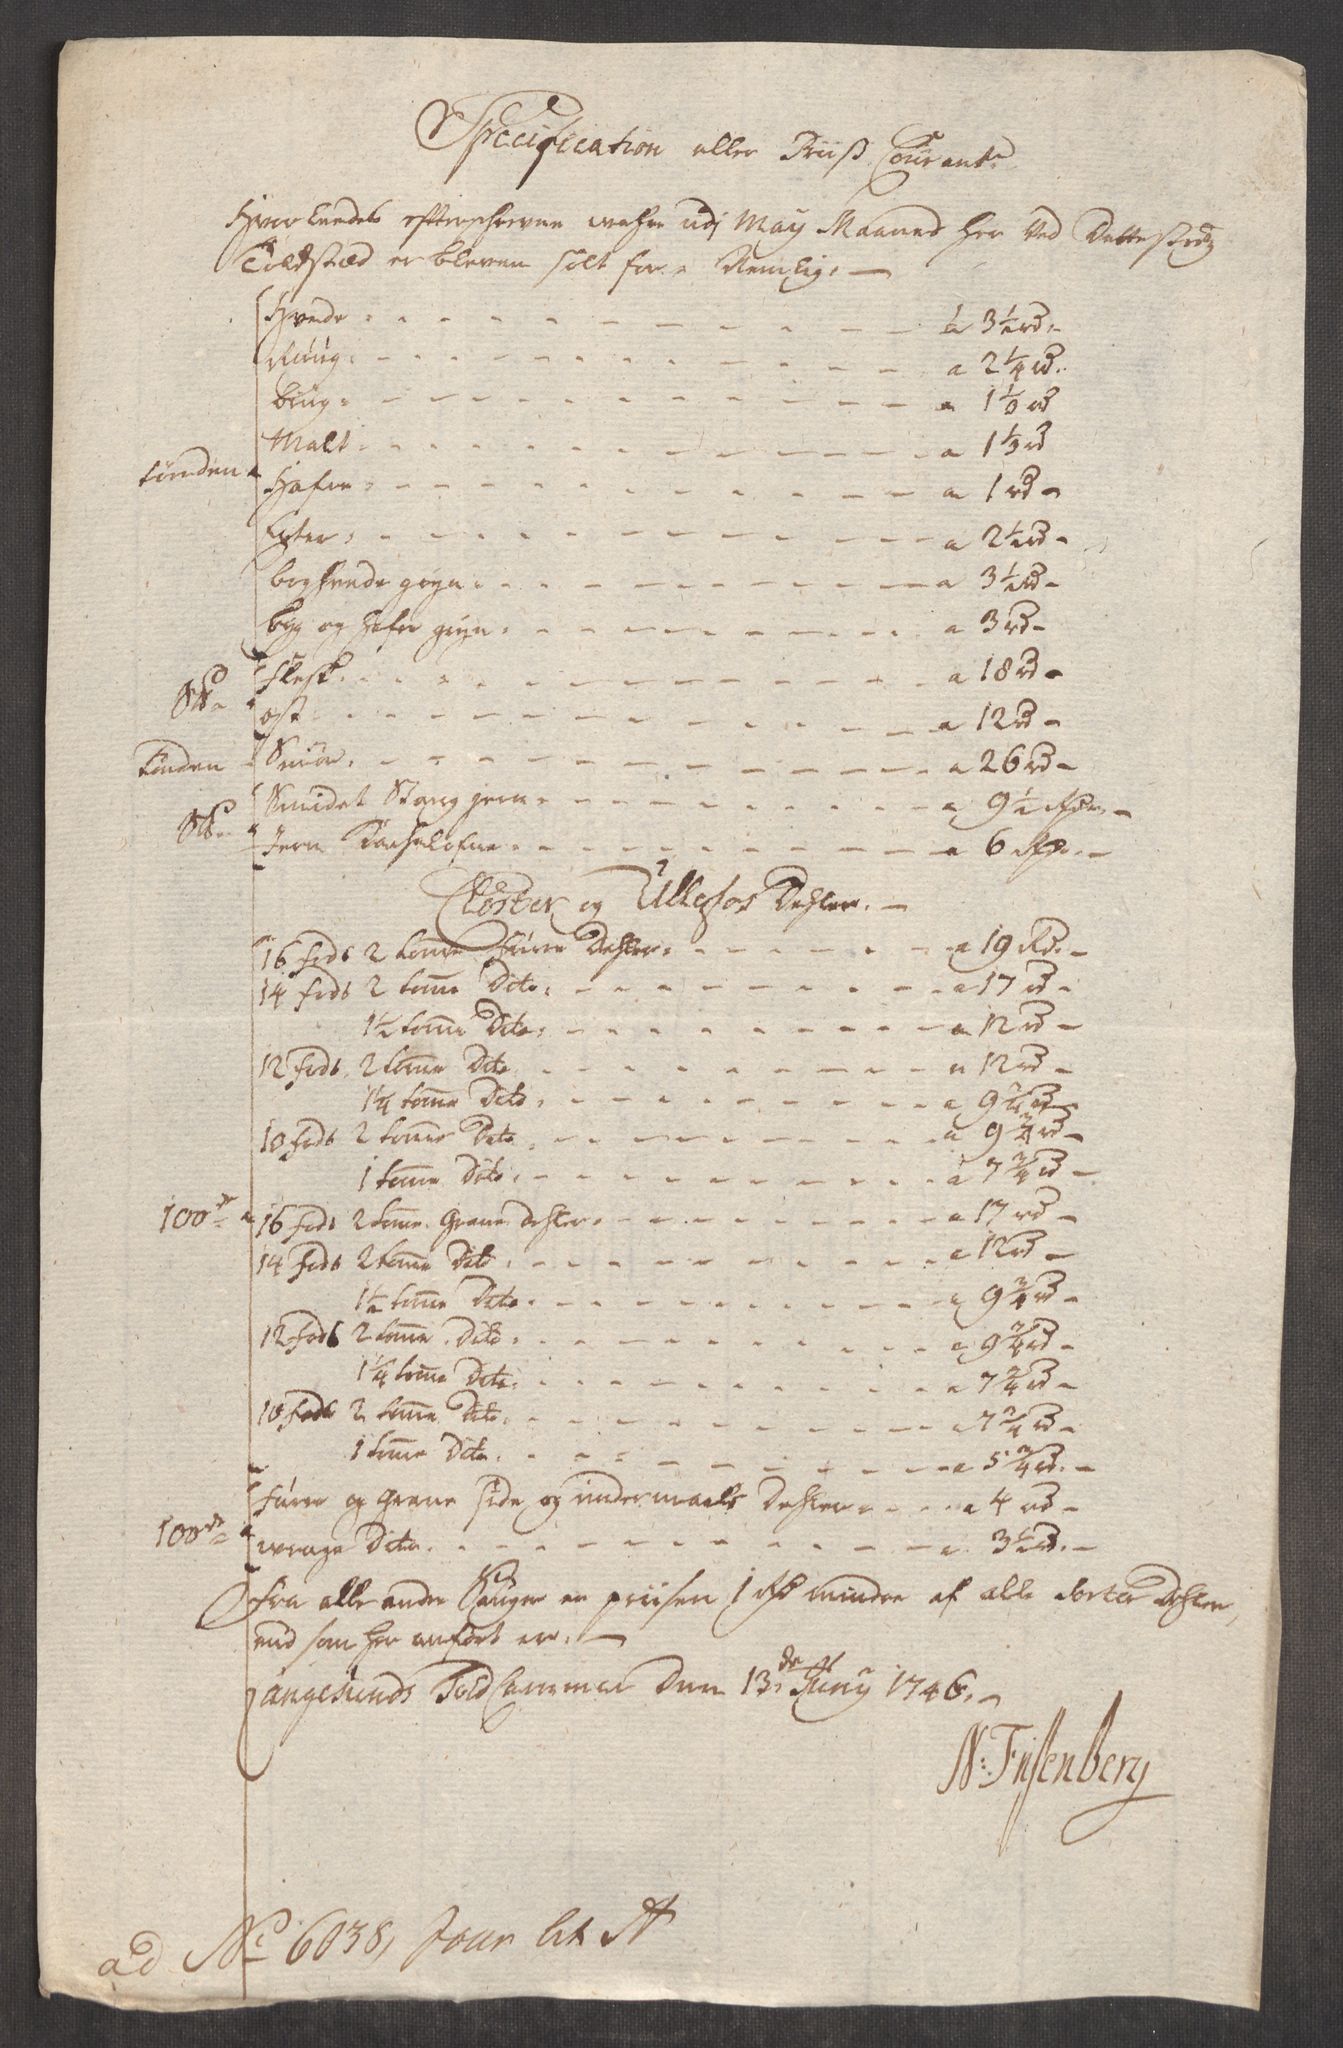 Specification eller Priiß Courant
Hvorledes efterschrevne wahre udj May Maaned her ved Dette
Toldsted er bleven solt for, Nemlig:
Hvede a 3 1/2 rd
Rüug a 2 1/4 rd
biug a 1 1/3 rd
Malt a 1 1/3 rd
tönden Hafre a 1 rd
Erter a 2 1/2 rd
boghvede gryn a 3 1/2 rd
byg og hafre gryn a 3 rd
Flesk a 18 rd
S℔ ost a 12 rd
tönden Smör a 26 rd
Smidet Stang jern a 9 1/2 Rd
S℔ Jern Kachelofne a 6 Rd
Closter og Ullefos Dehler
16 fods 2 tomme fürre Dehler a 19 Rd
14 fods 2 tomme Dito a 17 rd
1 1/2 tomme Dito a 12 rd
12 fods 2 tomme Dito a 12 rd
1 1/4 tomme Dito a 9 3/4 rd
10 fods 2 tomme Dito a 9 3/4 rd
1 tomme Dito a 7 3/4 rd
100de 16 fods 2 tomme Grane Dehler a 17 rd
14 fods 2 tomme Dito a 12 rd
1 1/2 tomme Dito a 9 3/4 rd
12 fods 2 tomme Dito a 9 3/4 rd
1 1/4 tomme Dito a 7 3/4 rd
10 fods 2 tomme Dito a 7 3/4 rd
1 tomme Dito a 5 3/4 rd
fürre og Grane side og undermaals Dehler a 4 rd
100de wrage Dito a 3 1/2 rd
fra alle andre Sauger er priisen 1 Rd mindre af alle sorter Dehler,
end som her anfört er.
Langesunds Told Cammer Den 13de Juny 1746.
N: Fissenberg
ad No 6038, Jour lit A